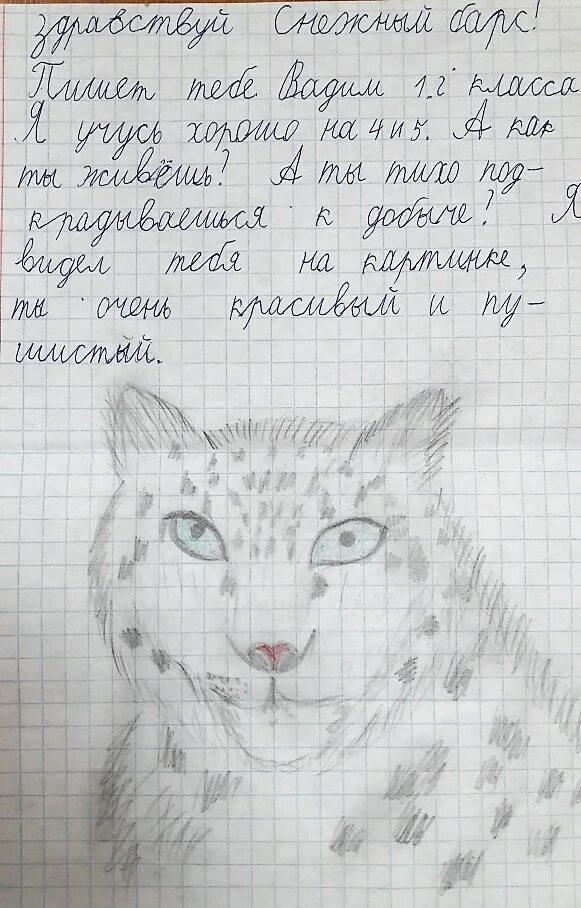 здравствуй Снежный барс!
Пишет тебе Вадим 1.г класса
Я учусь хорошо на 4 и 5. А как
ты живёшь? А ты тихо под-
крадываешься к добыче? Я
видел тебя на картинке,
ты очень красивый и пу-
шистый.